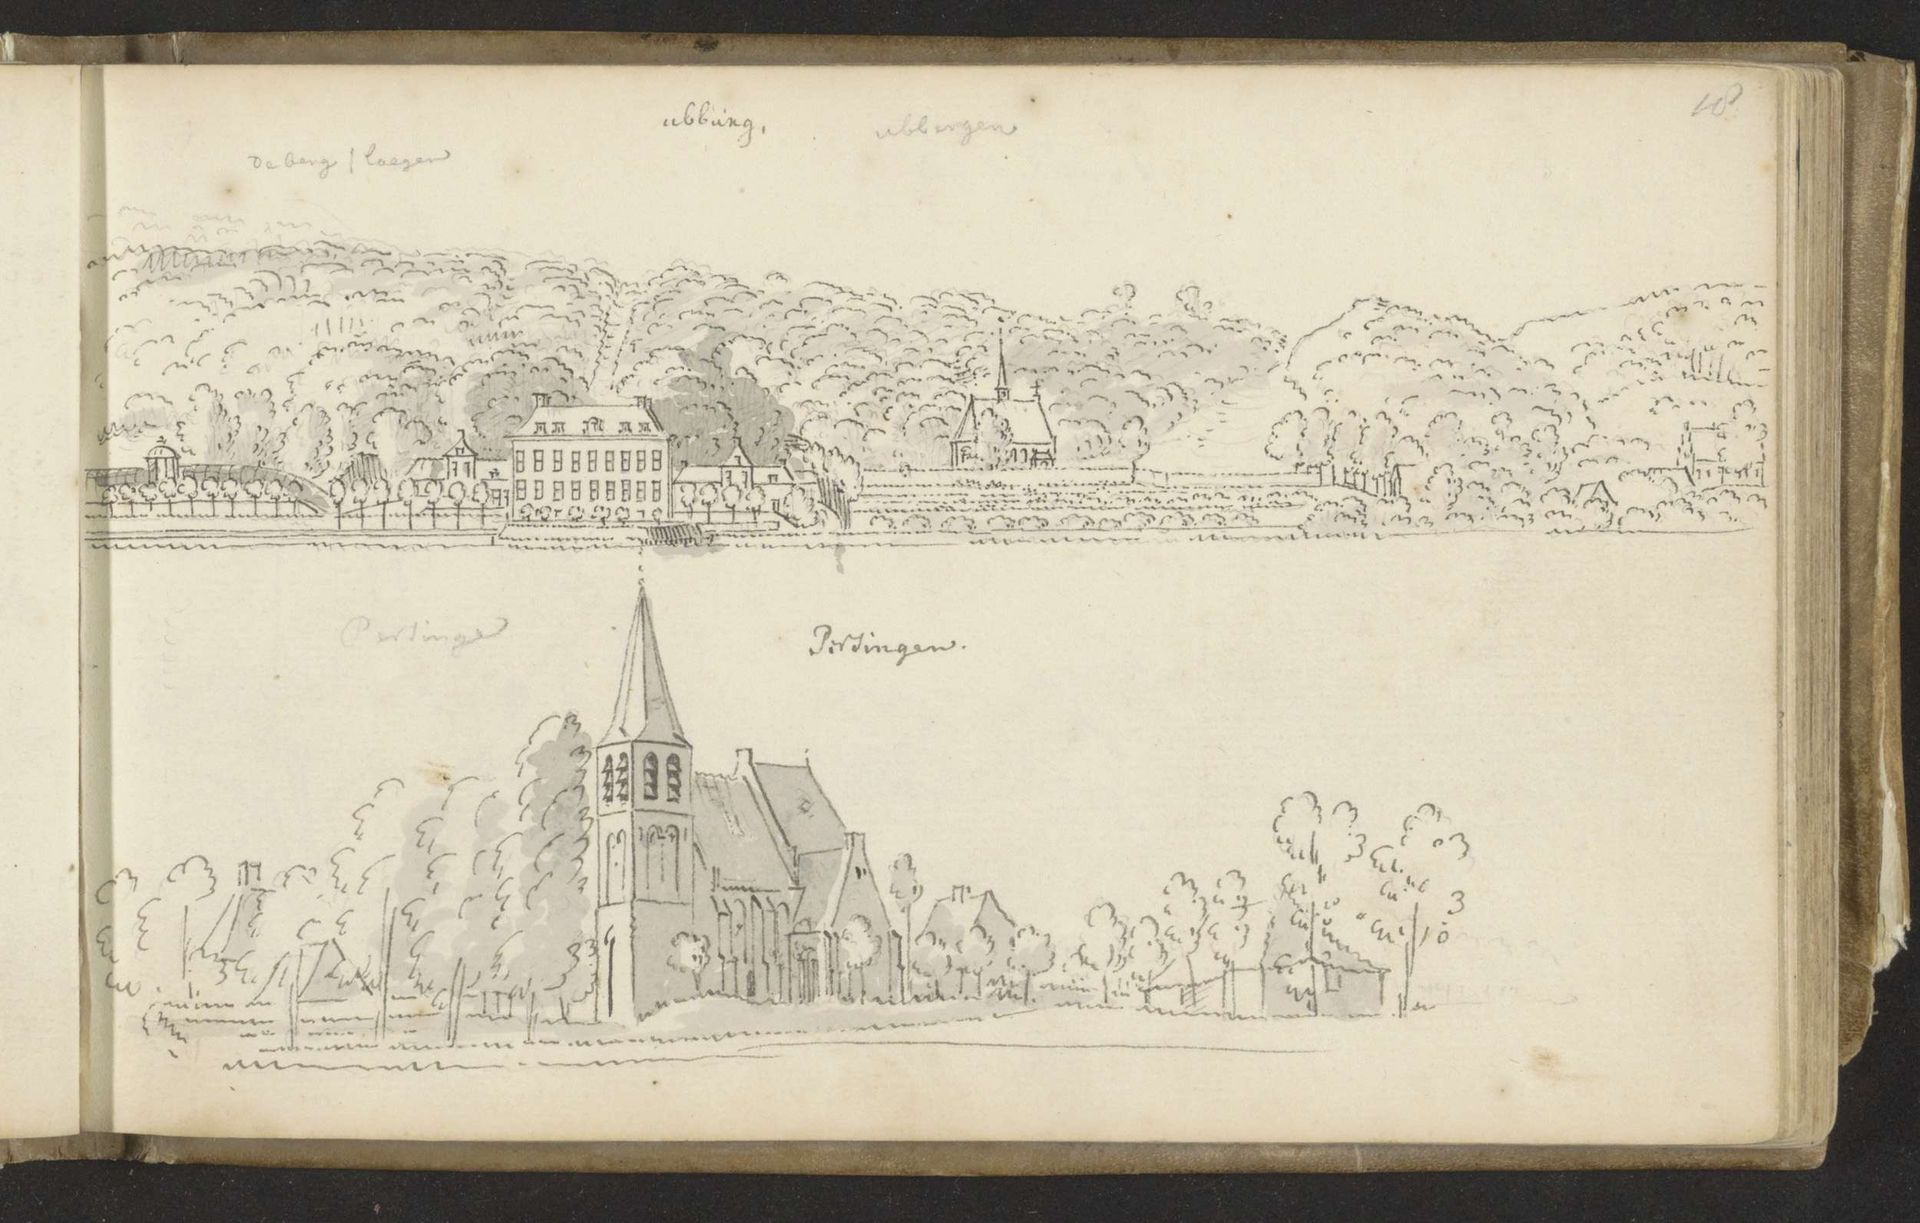 ubbüng, ubbergen
48
de berg / laeger
Persinge
Persingen.